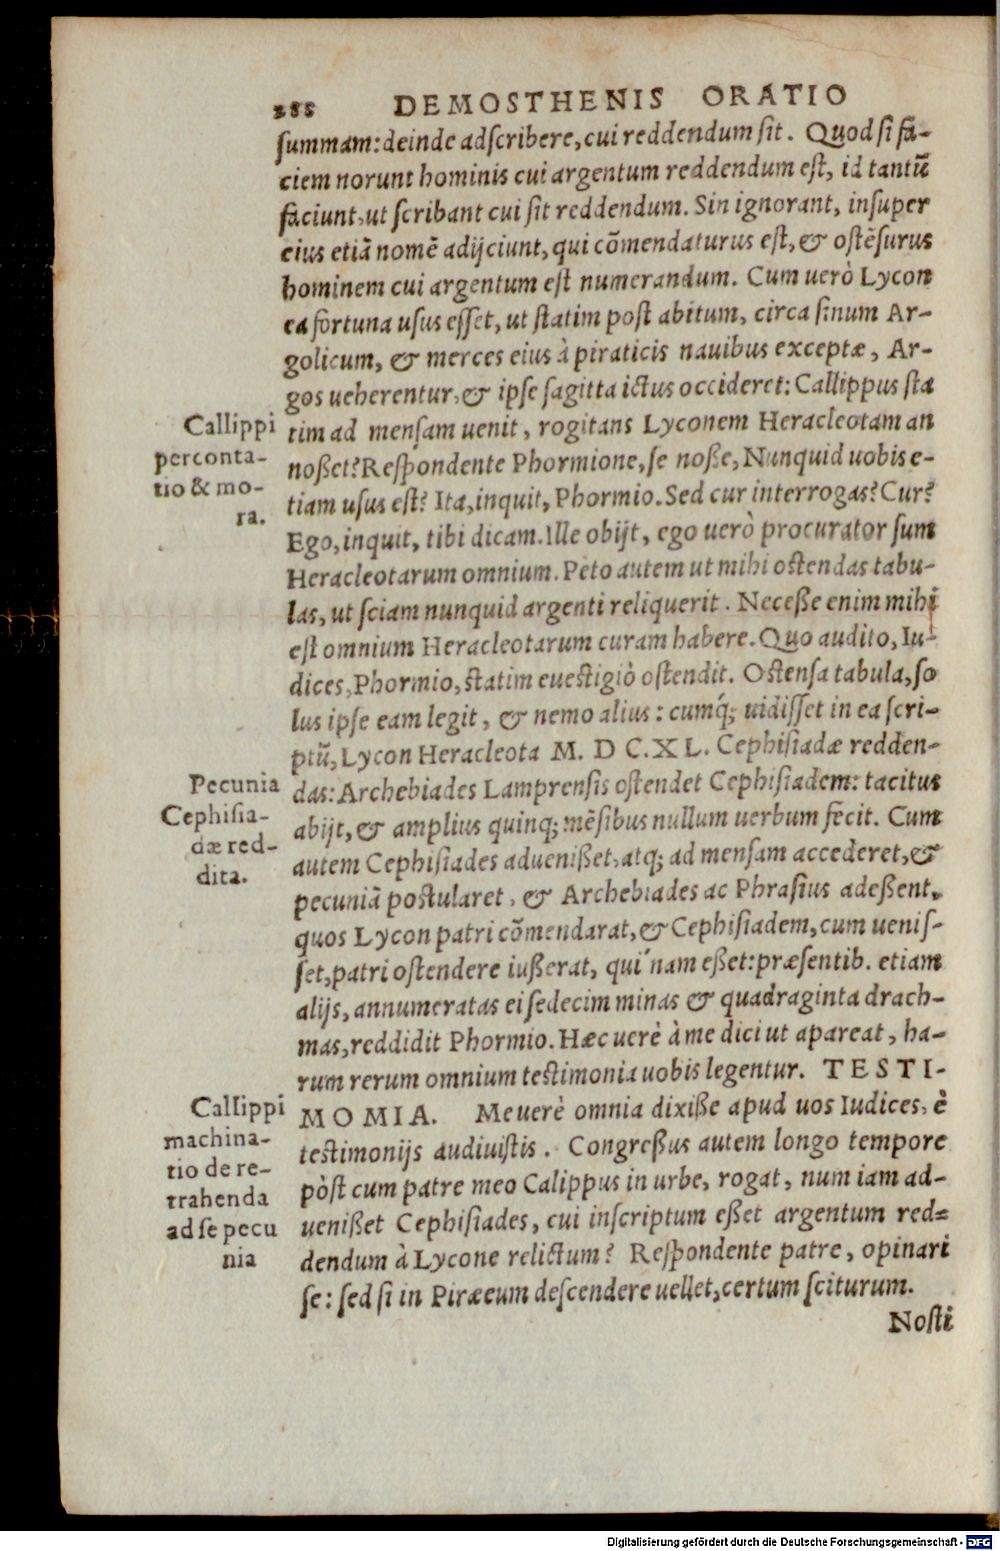 288 DEMOSTHENIS ORATIO
summam: deinde adscribere, cui reddendum sit. Quod si fa-
ciem norunt hominis cui argentum reddendum est, id tantũ
faciunt, ut scribant cui sit reddendum. Sin ignorant, insuper
eius etiã nomẽ adijciunt, qui cõmendaturus est, & ostẽsurus
hominem cui argentum est numerandum. Cum uerò Lycon
ea fortuna usus esset, ut statim post abitum, circa sinum Ar-
golicum, & merces eius à piraticis nauibus exceptæ, Ar-
gos ueherentur, & ipse sagitta ictus occideret: Callippus sta
tim ad mensam uenit, rogitans Lyconem Heracleotam an
noßet? Respondente Phormione, se noße, Nunquid uobis e-
tiam usus est? Ita, inquit, Phormio. Sed cur interrogas? Cur?
Ego, inquit, tibi dicam. Ille obijt, ego uerò procurator sum
Heracleotarum omnium. Peto autem ut mihi ostendas tabu-
las, ut sciam nunquid argenti reliquerit. Neceße enim mihi
est omnium Heracleotarum curam habere. Quo audito, Iu-
dices, Phormio, statim euestigiò ostendit. Ostensa tabula, so
lus ipse eam legit, & nemo alius: cumq́; uidisset in ea scri-
ptũ, Lycon Heracleota M. D C. X L. Cephisiadæ redden-
das: Archebiades Lamprensis ostendet Cephisiadem: tacitus
abijt, & amplius quinq; mẽsibus nullum uerbum fecit. Cum
autem Cephisiades adueniẞet, atq; ad mensam accederet, &
pecuniã postularet, & Archebiades ac Phrasius adeßent,
quos Lycon patri cõmendarat, & Cephisiadem, cum uenis-
set, patri ostendere iußerat, qui nam eßet: præsentib. etiam
alijs, annumeratas ei sedecim minas & quadraginta drach-
mas, reddidit Phormio. Hæc uerè à me dici ut apareat, ha-
rum rerum omnium testimonia uobis legentur. T E S T I-
M O M I A. Me uerè omnia dixiße apud uos Iudices, è
testimonijs audiuistis. Congreßus autem longo tempore
pòst cum patre meo Calippus in urbe, rogat, num iam ad-
uenißet Cephisiades, cui inscriptum eßet argentum red-
dendum à Lycone relictum? Respondente patre, opinari
se: sed si in Piræeum descendere uellet, certum sciturum.
Nosti
Callippi
perconta-
tio & mo-
ra.
Pecunia
Cephisia-
dæ red-
dita.
Callippi
machina-
tio de re-
trahenda
ad se pecu
nia
Digitalisierung gefördert durch die Deutsche Forschungsgemeinschaft - DFG